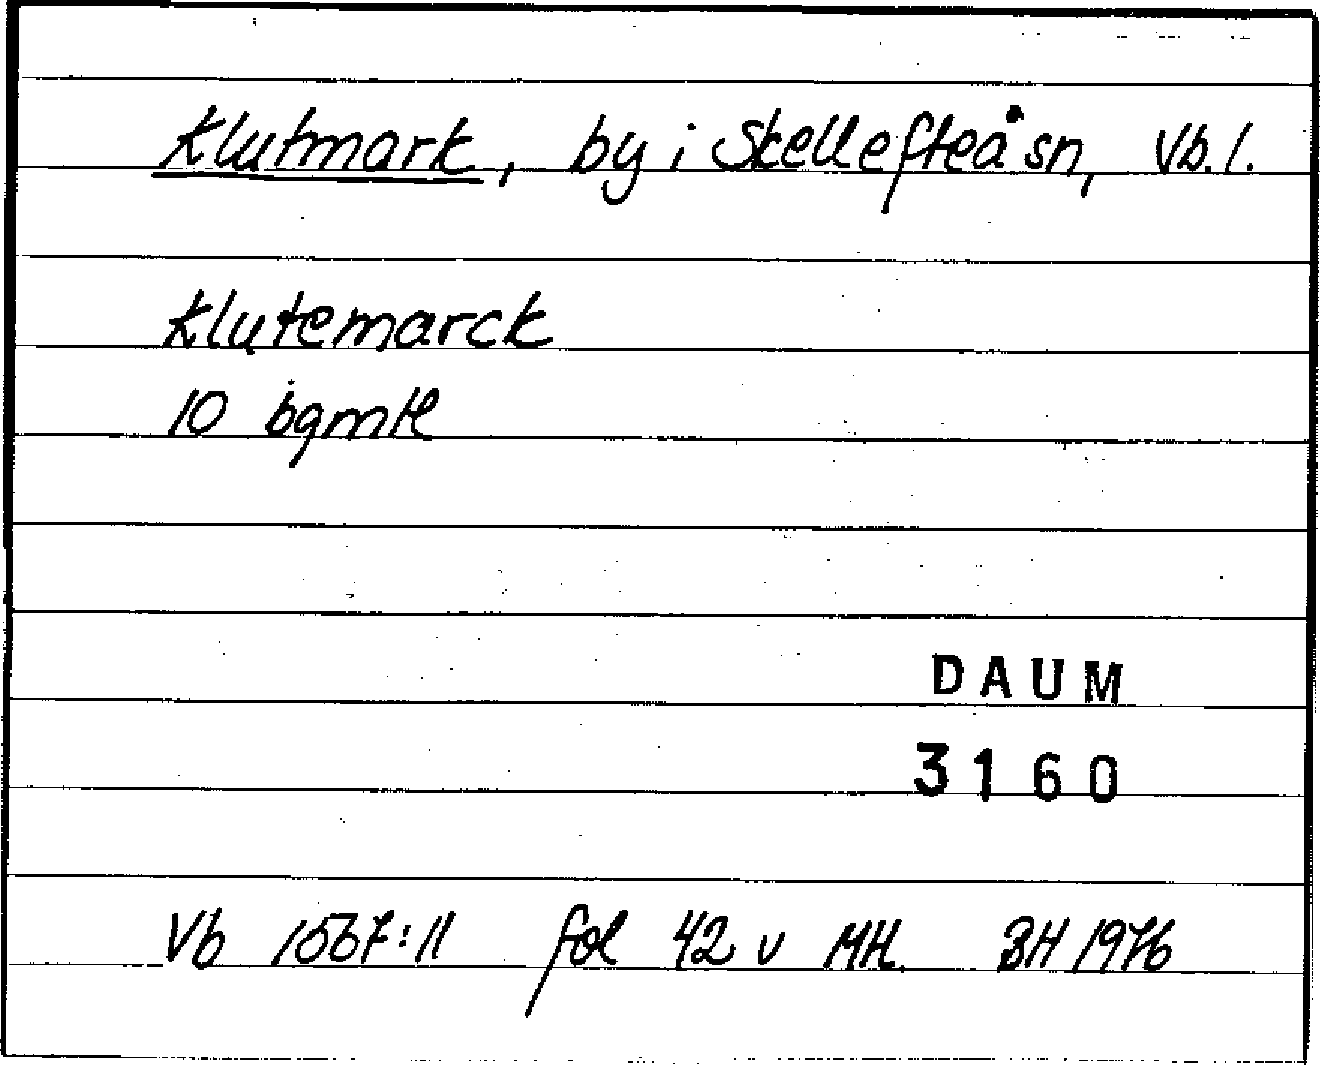 Klutmark, by i Skellefteå sn, Vb. l.
Klutemarck
10 bgmtl
DAUM
3160
Vb 1567:11 fol 42 v MH. BH 1976